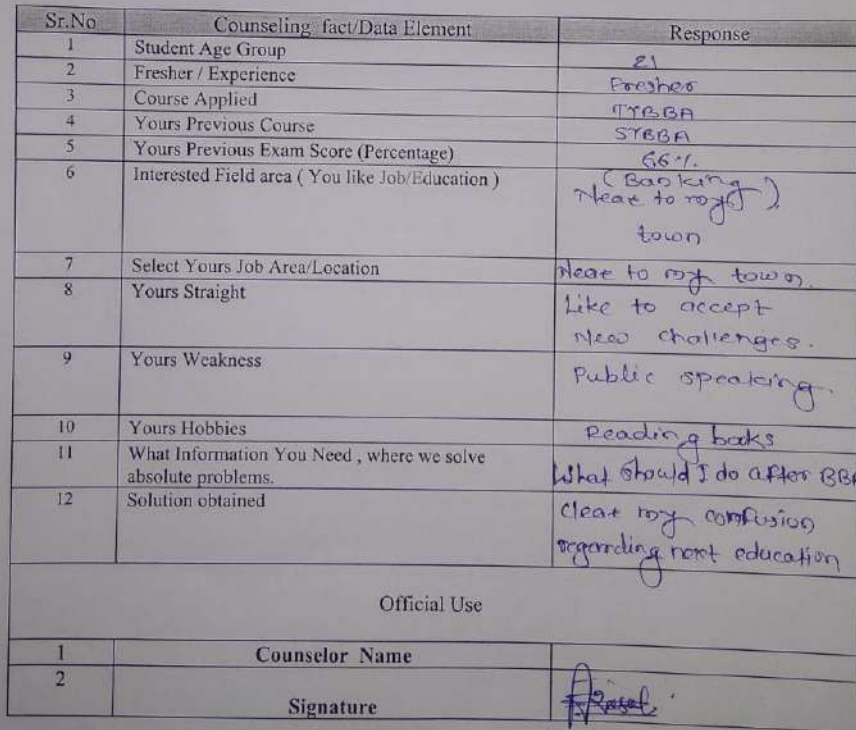 Sr.No Counseling fact/Data Element Response
1 Student Age Group 21
2 Fresher / Experience Fresher
3 Course Applied TYBBA
4 Yours Previous Course SYBBA
5 Yours Previous Exam Score (Percentage) 66%
6 Interested Field area ( You like Job/Education ) (Banking)
Near to my
town
7 Select Yours Job Area/Location Near to my town.
8 Yours Straight Like to accept
New challenges.
9 Yours Weakness Public speaking.
10 Yours Hobbies Reading books
11 What Information You Need , where we solve
absolute problems. What should I do after BBA
12 Solution obtained Clear my confusion
regarding next education
Official Use
1 Counselor Name
2
Signature